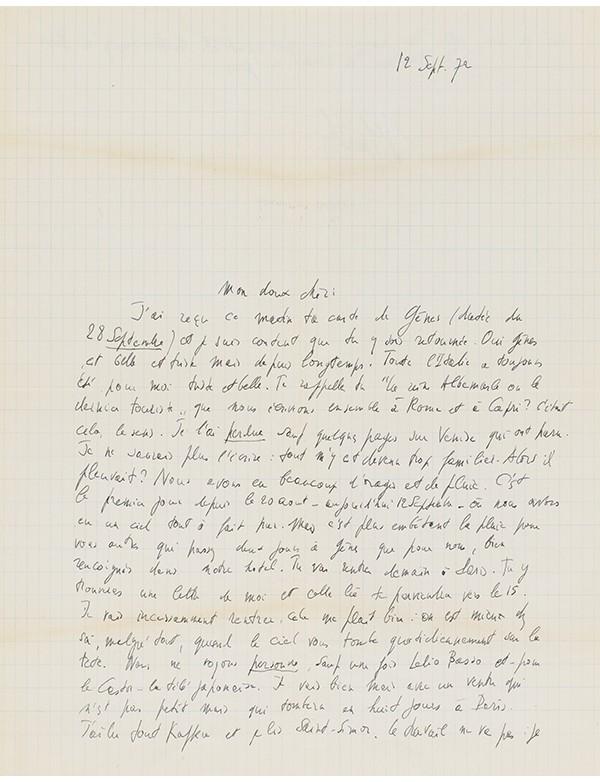 12 Sept. 72
Mon doux chéri
J'ai reçu ce matin ta carte de Gênes (datée du
28 Septembre) et je suis content que tu y sois retournée. Oui Gênes
est belle et triste mais depuis longtemps. Toute l'Italie a toujours
été pour moi triste et belle. Te rappelles tu "La reine Albemarle ou le
dernier touriste" que nous écrivions ensemble à Rome et à Capri? C'était
cela, le sens. Je l'ai perdue sauf quelques pages sur Venise qui ont paru.
Je ne saurais plus l'écrire : tout m'y est devenu trop familier. Alors il
pleuvait? Nous avons eu beaucoup d'orages et de pluie. C'est
le premier jour depuis le 20 août - aujourd'hui 12 Septembre - où nous avons
eu un ciel tout à fait pur. Mais c'est plus embêtant la pluie pour
vous autres qui passez deux jours à Gêne que pour nous, bien
rencoignés dans notre hotel. Tu vas rentrer demain à Paris. Tu y
trouveras une lettre de moi et celle là te parviendra vers le 15.
Je vais incessamment rentrer, cela me plait bien : on est mieux chez
soi, malgré tout, quand le ciel vous tombe quotidiennement sur la
tête. Nous ne voyons personne, sauf une fois Lelio Basso et - pour
le Castor - la télé japonaise. Je vais bien mais avec un ventre qui
n'est pas petit mais qui tombera en huit jours à Paris.
J'ai lu tout Kafka et je lis Saint-Simon. Le travail ne va pas : je